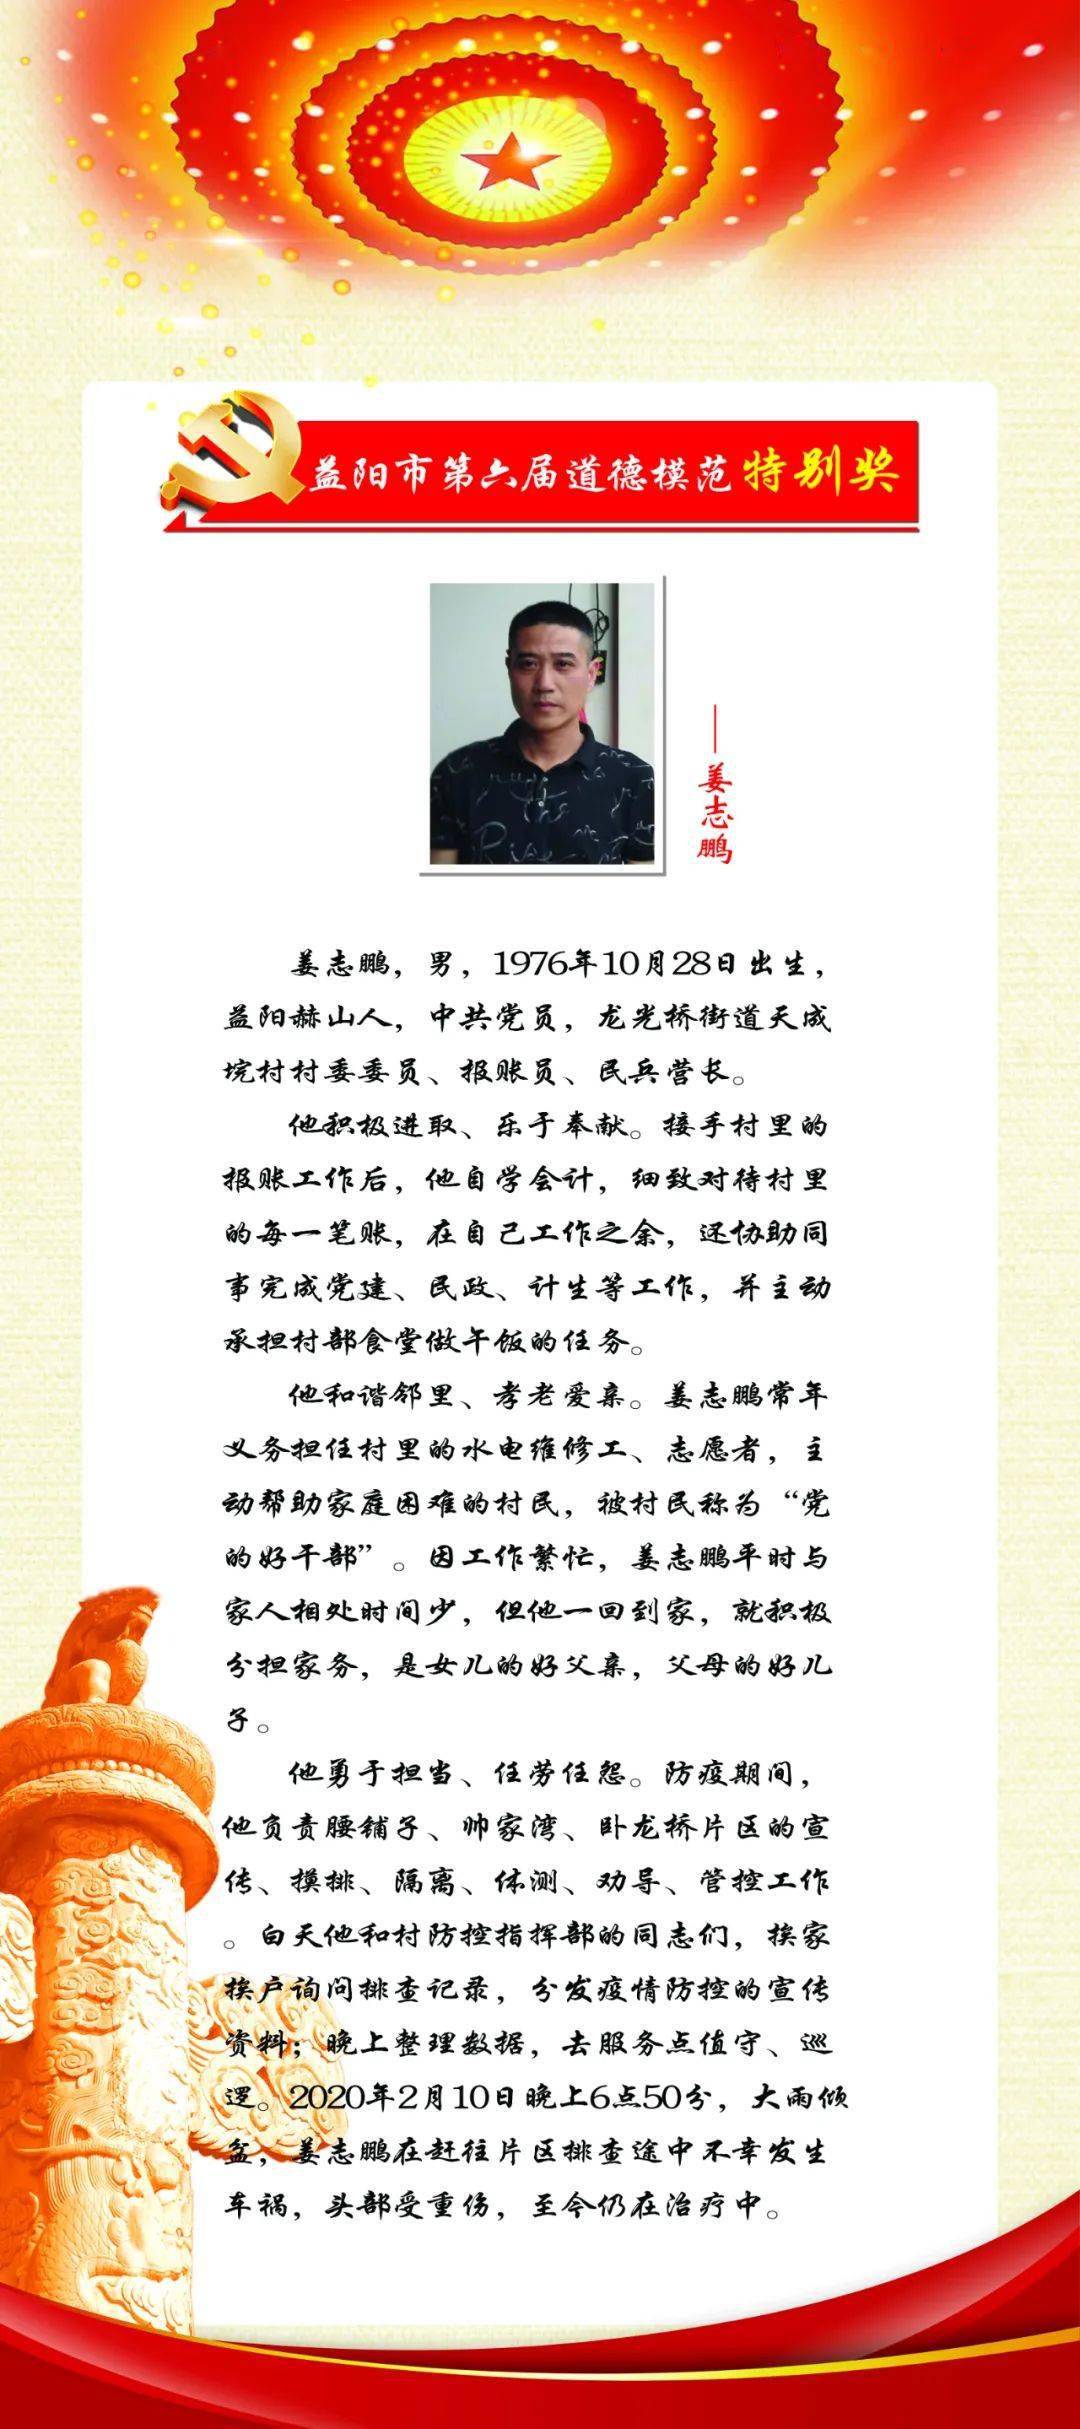 益阳市第六届道德模范特别奖
——姜志鹏
姜志鹏，男，1976年10月28日出生，
益阳赫山人，中共党员，龙光桥街道天成
垸村村委委员、报账员、民兵营长。
他积极进取、乐于奉献。接手村里的
报账工作后，他自学会计，细致对待村里
的每一笔账，在自己工作之余，还协助同
事完成党建、民政、计生等工作，并主动
承担村部食堂做午饭的任务。
他和谐邻里、孝老爱亲。姜志鹏常年
义务担任村里的水电维修工、志愿者，主
动帮助家庭困难的村民，被村民称为“党
的好干部”。因工作繁忙，姜志鹏平时与
家人相处时间少，但他一回到家，就积极
分担家务，是女儿的好父亲，父母的好儿
子。
他勇于担当、任劳任怨。防疫期间，
他负责腰铺子、帅家湾、卧龙桥片区的宣
传、摸排、隔离、体测、劝导、管控工作
。白天他和村防控指挥部的同志们，挨家
挨户询问排查记录，分发疫情防控的宣传
资料；晚上整理数据，去服务点值守、巡
逻。2020年2月10日晚上6点50分，大雨倾
盆，姜志鹏在赶往片区排查途中不幸发生
车祸，头部受重伤，至今仍在治疗中。